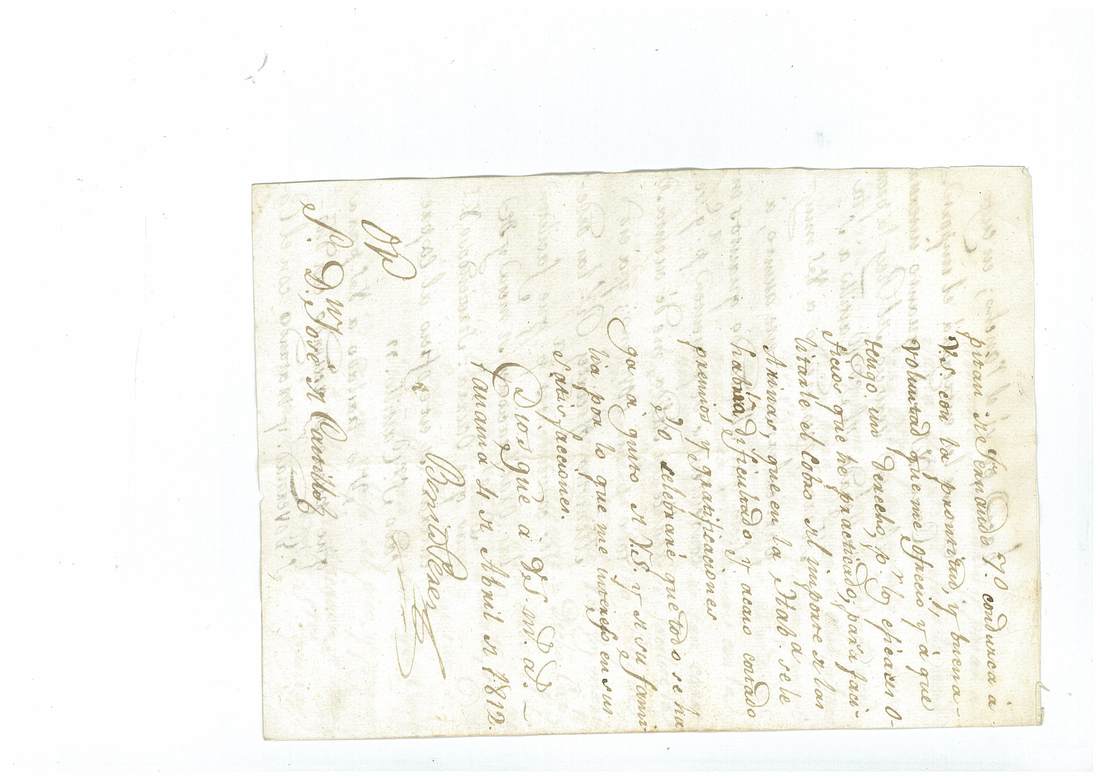 pitan Dn Fernando
Yo conduzca à
V.S. con la prontitud, y buena
voluntad que me ofreció y à que
tengo un derecho, pr. los eficaces O-
ficios que he practicado, para faci-
litarle el Cobro del importe de las
Aninas, que en la Haba. se le
habría dificultado y acaso costado
premios, y gratificaciones
Yo celebraré que todo se ha
ga à gusto de V.S. y de su fami
lia por lo que me intereso en sus
satisfacciones.
Dios gue à V.S. m. a.
Panamá 4 de Abril de 1812.
Benito Perez
Sr. Dn. José de Carrillo